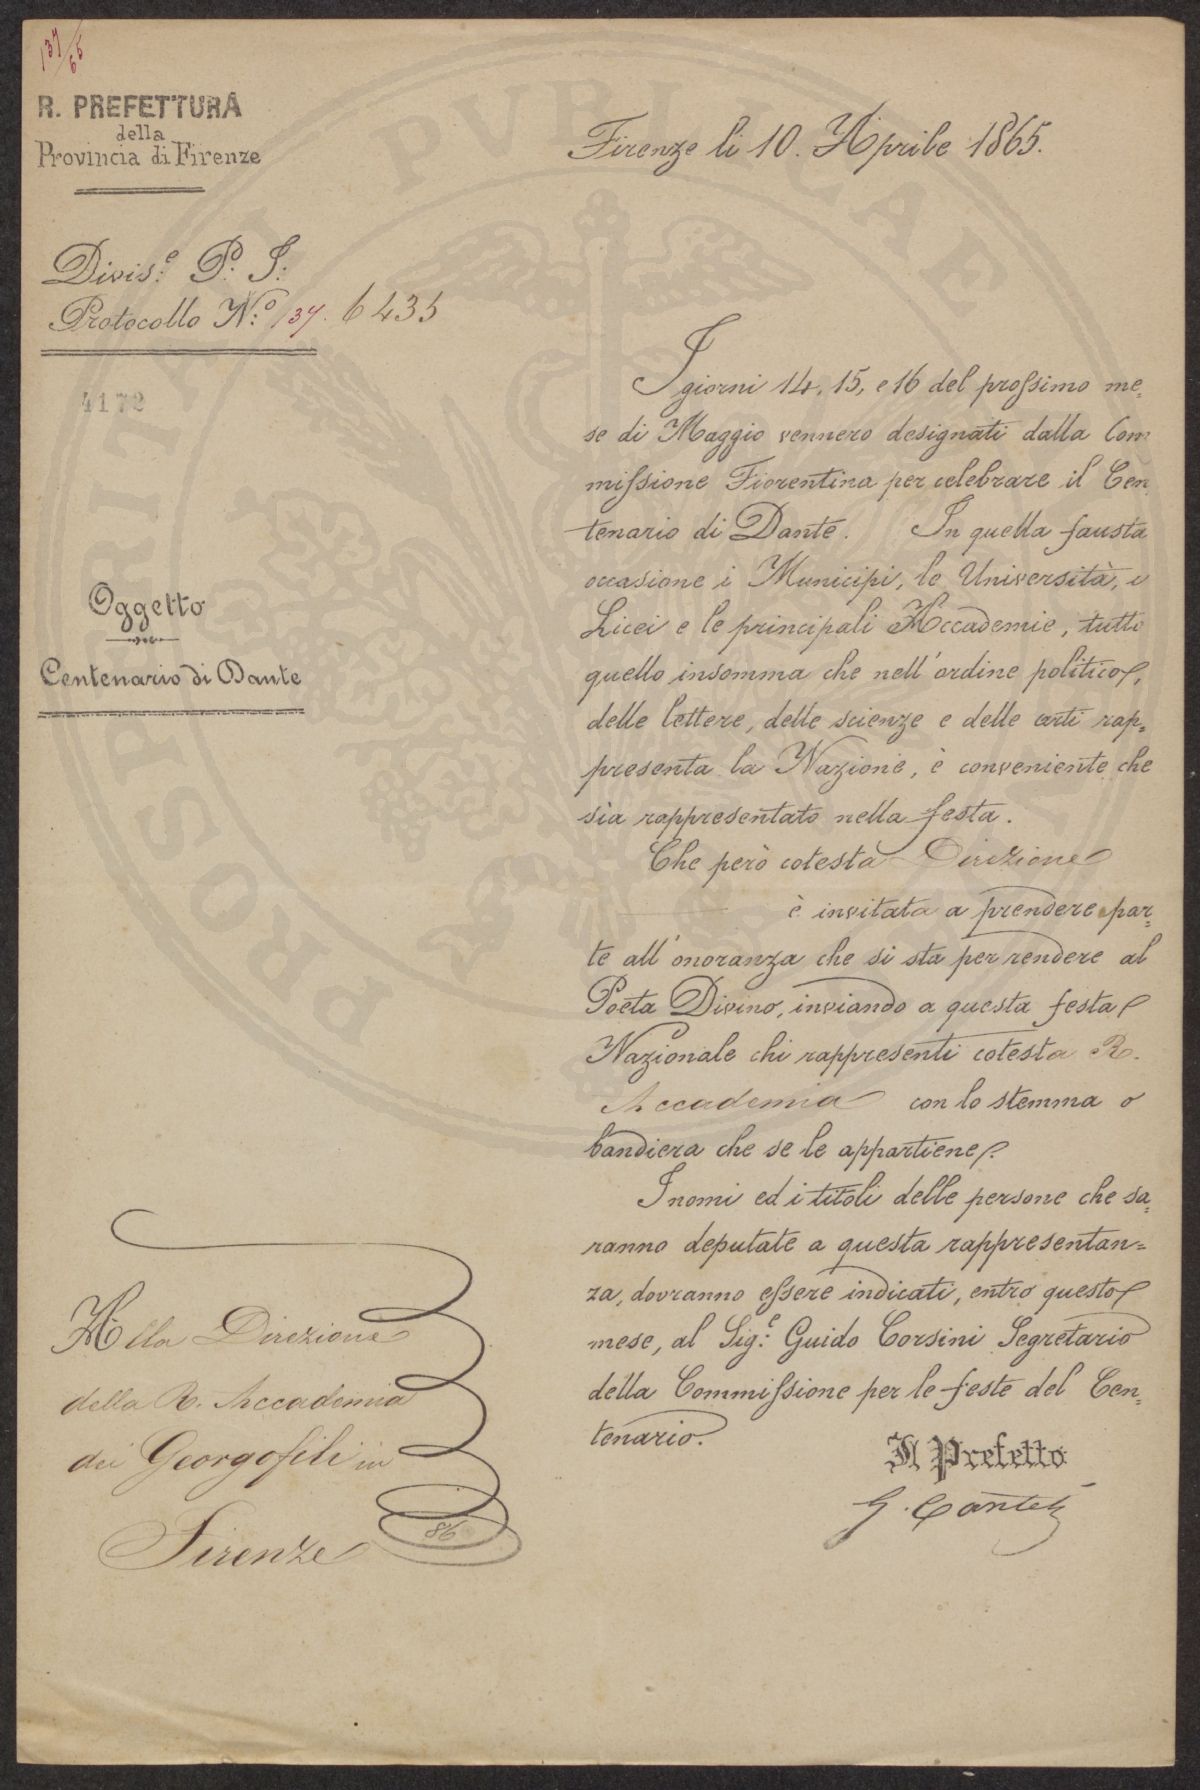 137/65
R. PREFETTURA
della
Provincia di Firenze
Firenze li 10. Aprile 1865.
Divis.e P. I:
Protocollo N.o 137. 6435
4172
Oggetto
Centenario di Dante
I giorni 14, 15, e 16 del prossimo me=
se di Maggio vennero designati dalla Com=
missione Fiorentina per celebrare il Cen=
tenario di Dante. In quella fausta
occasione i Municipi, le Università, i
Licei e le principali Accademie, tutto
quello insomma che nell'ordine politico,
delle lettere, delle scienze e delle arti rap=
presenta la Nazione, è conveniente che
sia rappresentato nella festa.
Che però cotesta Direzione
è invitata a prendere par=
te all'onoranza che si sta per rendere al
Poeta Divino, inviando a questa festa
Nazionale chi rappresenti cotesta R.
Accademia con lo stemma o
bandiera che se le appartiene.
I nomi ed i titoli delle persone che sa=
ranno deputate a questa rappresentan=
za, dovranno essere indicati, entro questo
mese, al Sig.e Guido Corsini Segretario
della Commissione per le feste del Cen=
tenario.
Il Prefetto
G. Cantelli
Alla Direzione
della R. Accademia
dei Georgofili in
Firenze
86